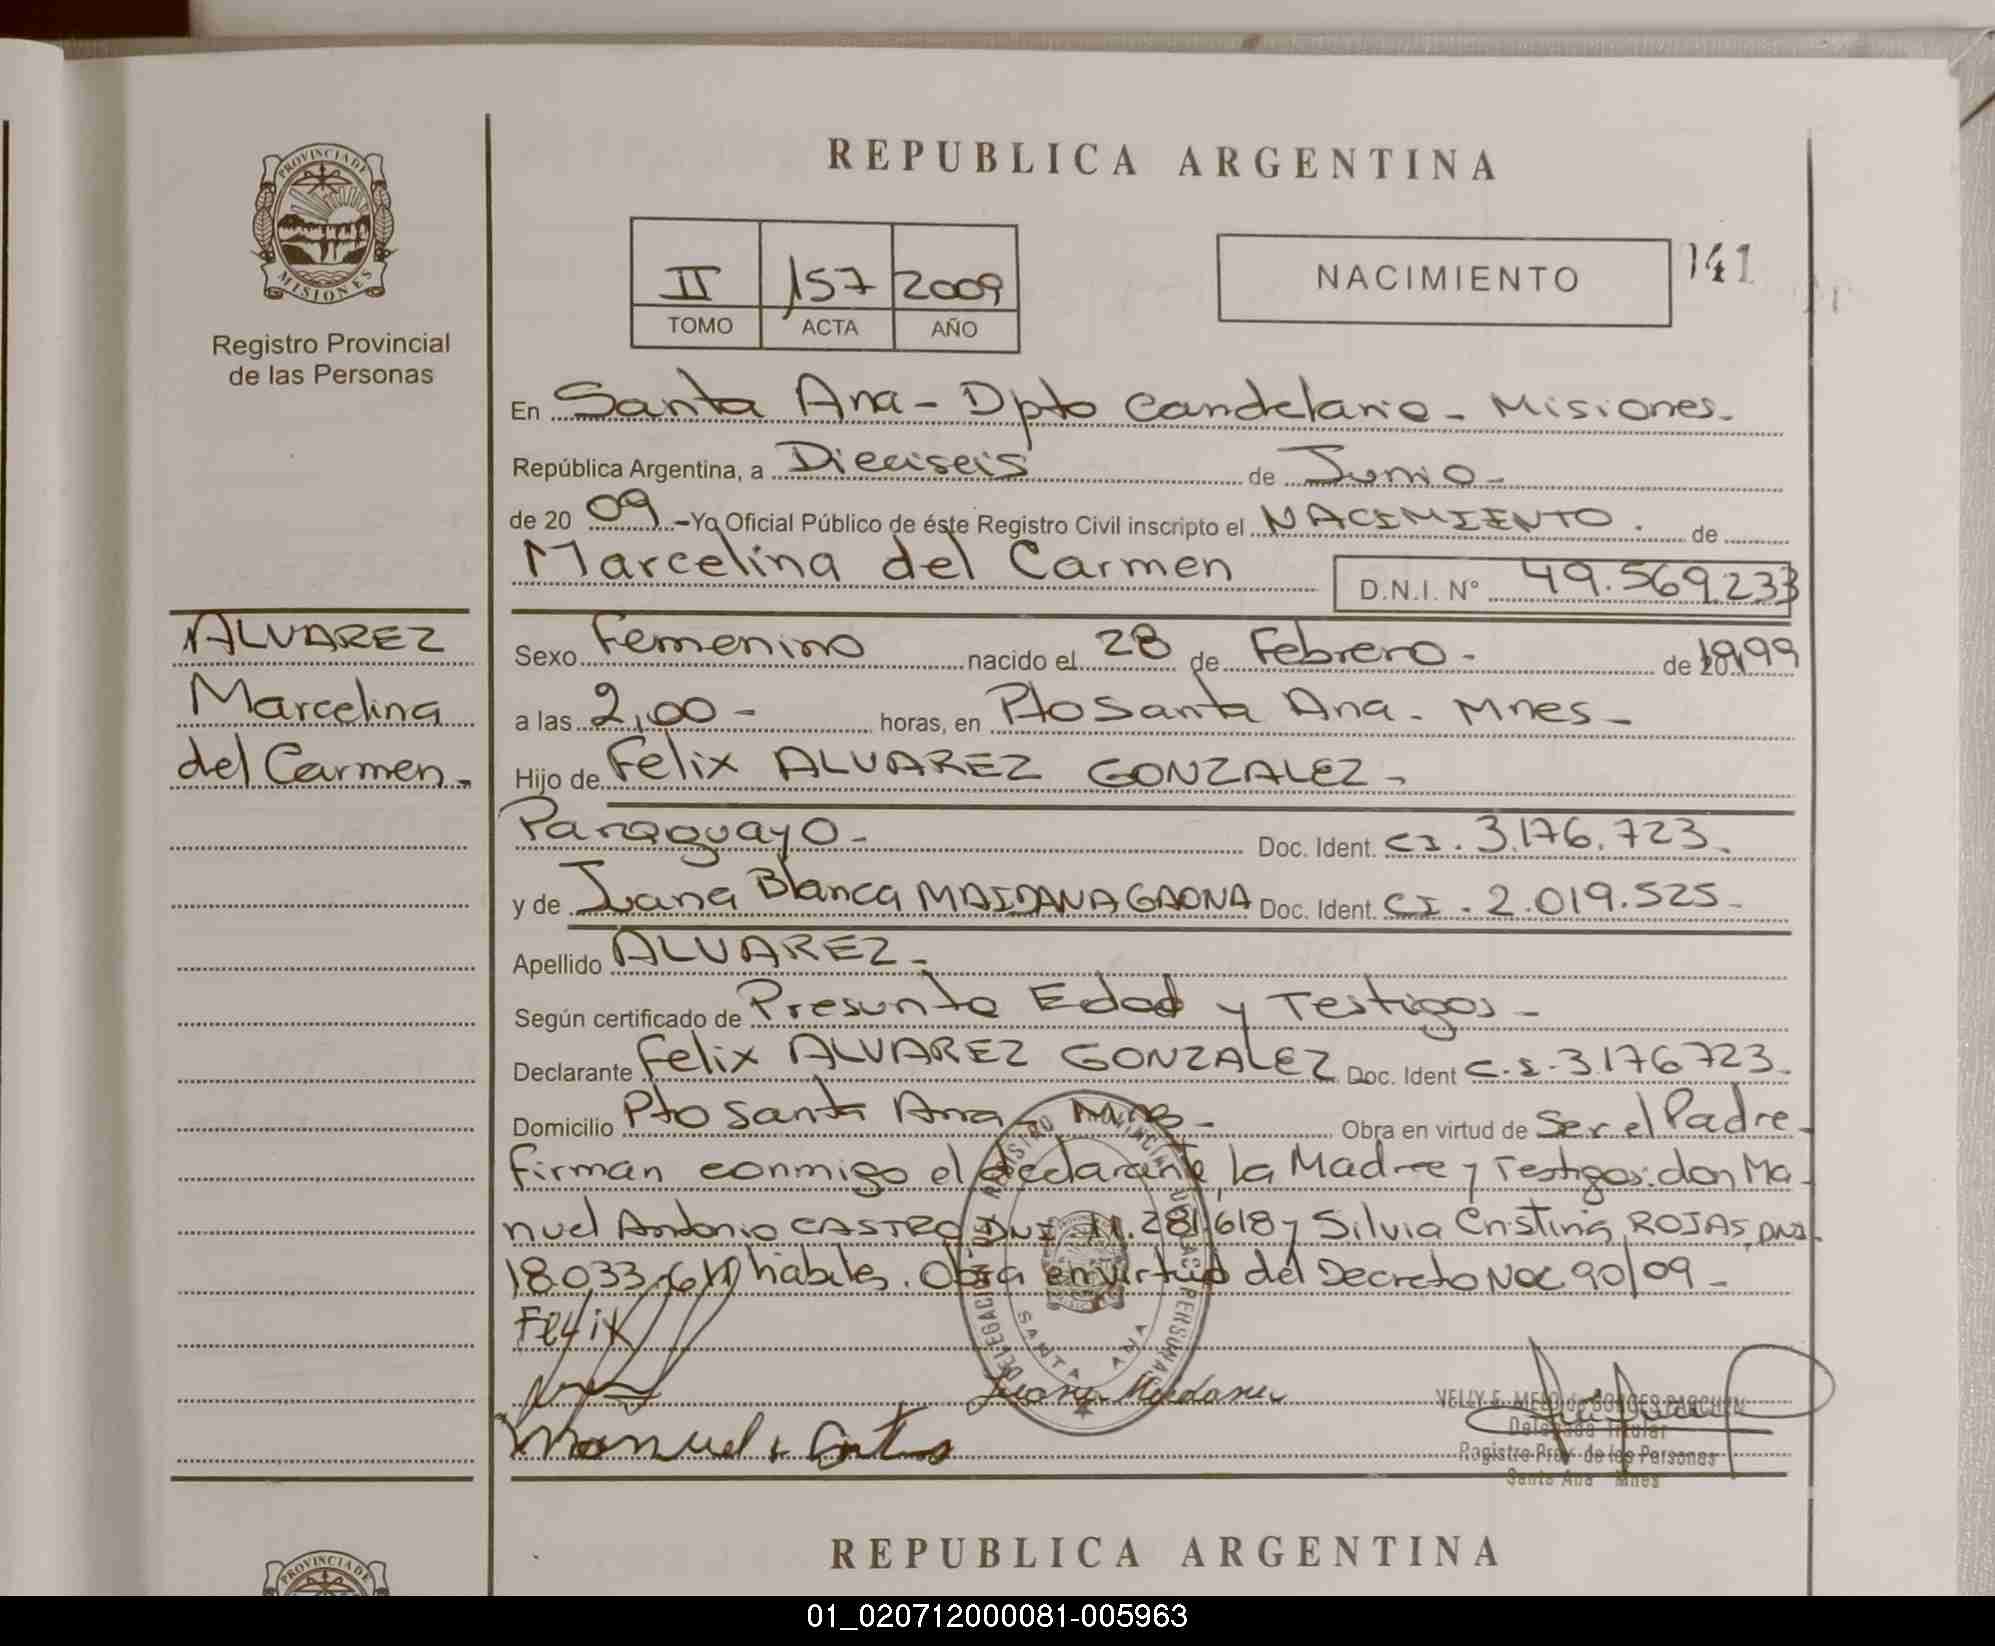 REPUBLICA ARGENTINA
PROVINCIA DE
MISIONES
Registro Provincial
de las Personas
II 157 2009
TOMO ACTA AÑO
NACIMIENTO
141
En Santa Ana - Dpto Candelaria - Misiones.
República Argentina, a Dieciseis de Junio -
de 20 09 -Yo Oficial Público de éste Registro Civil inscripto el NACIMIENTO. de
Marcelina del Carmen D.N.I. N° 49.569.233
ALVAREZ
Marcelina
del Carmen.
Sexo Femenino nacido el 28 de Febrero - de 1999
a las 2,00 - horas, en Pto Santa Ana. Mnes -
Hijo de Felix ALVAREZ GONZALEZ -
Paraguayo - Doc. Ident. CI. 3.176.723.
y de Juana Blanca MAIDANA GAONA Doc. Ident. CI. 2.019.525 -
Apellido ALVAREZ -
Según certificado de Presunta Edad y Testigos -
Declarante Felix ALVAREZ GONZALEZ Doc. Ident C.I. 3176723.
Domicilio Pto Santa Ana - Obra en virtud de Ser el Padre -
Firman conmigo el declarante, la Madre y Testigos: don Ma-
nuel Antonio CASTRO DNI 11.281.618 y Silvia Cristina ROJAS, DNI.
18.033. habiles. Obra en virtud del Decreto Nac 90/09 -
REGISTRO PROVINCIAL DE LAS PERSONAS
SANTA ANA
Juana Maidana
Manuel
Delegada Titular
Registro Prov. de las Personas
Santa Ana Mnes
REPUBLICA ARGENTINA
PROVINCIA DE
01_020712000081-005963